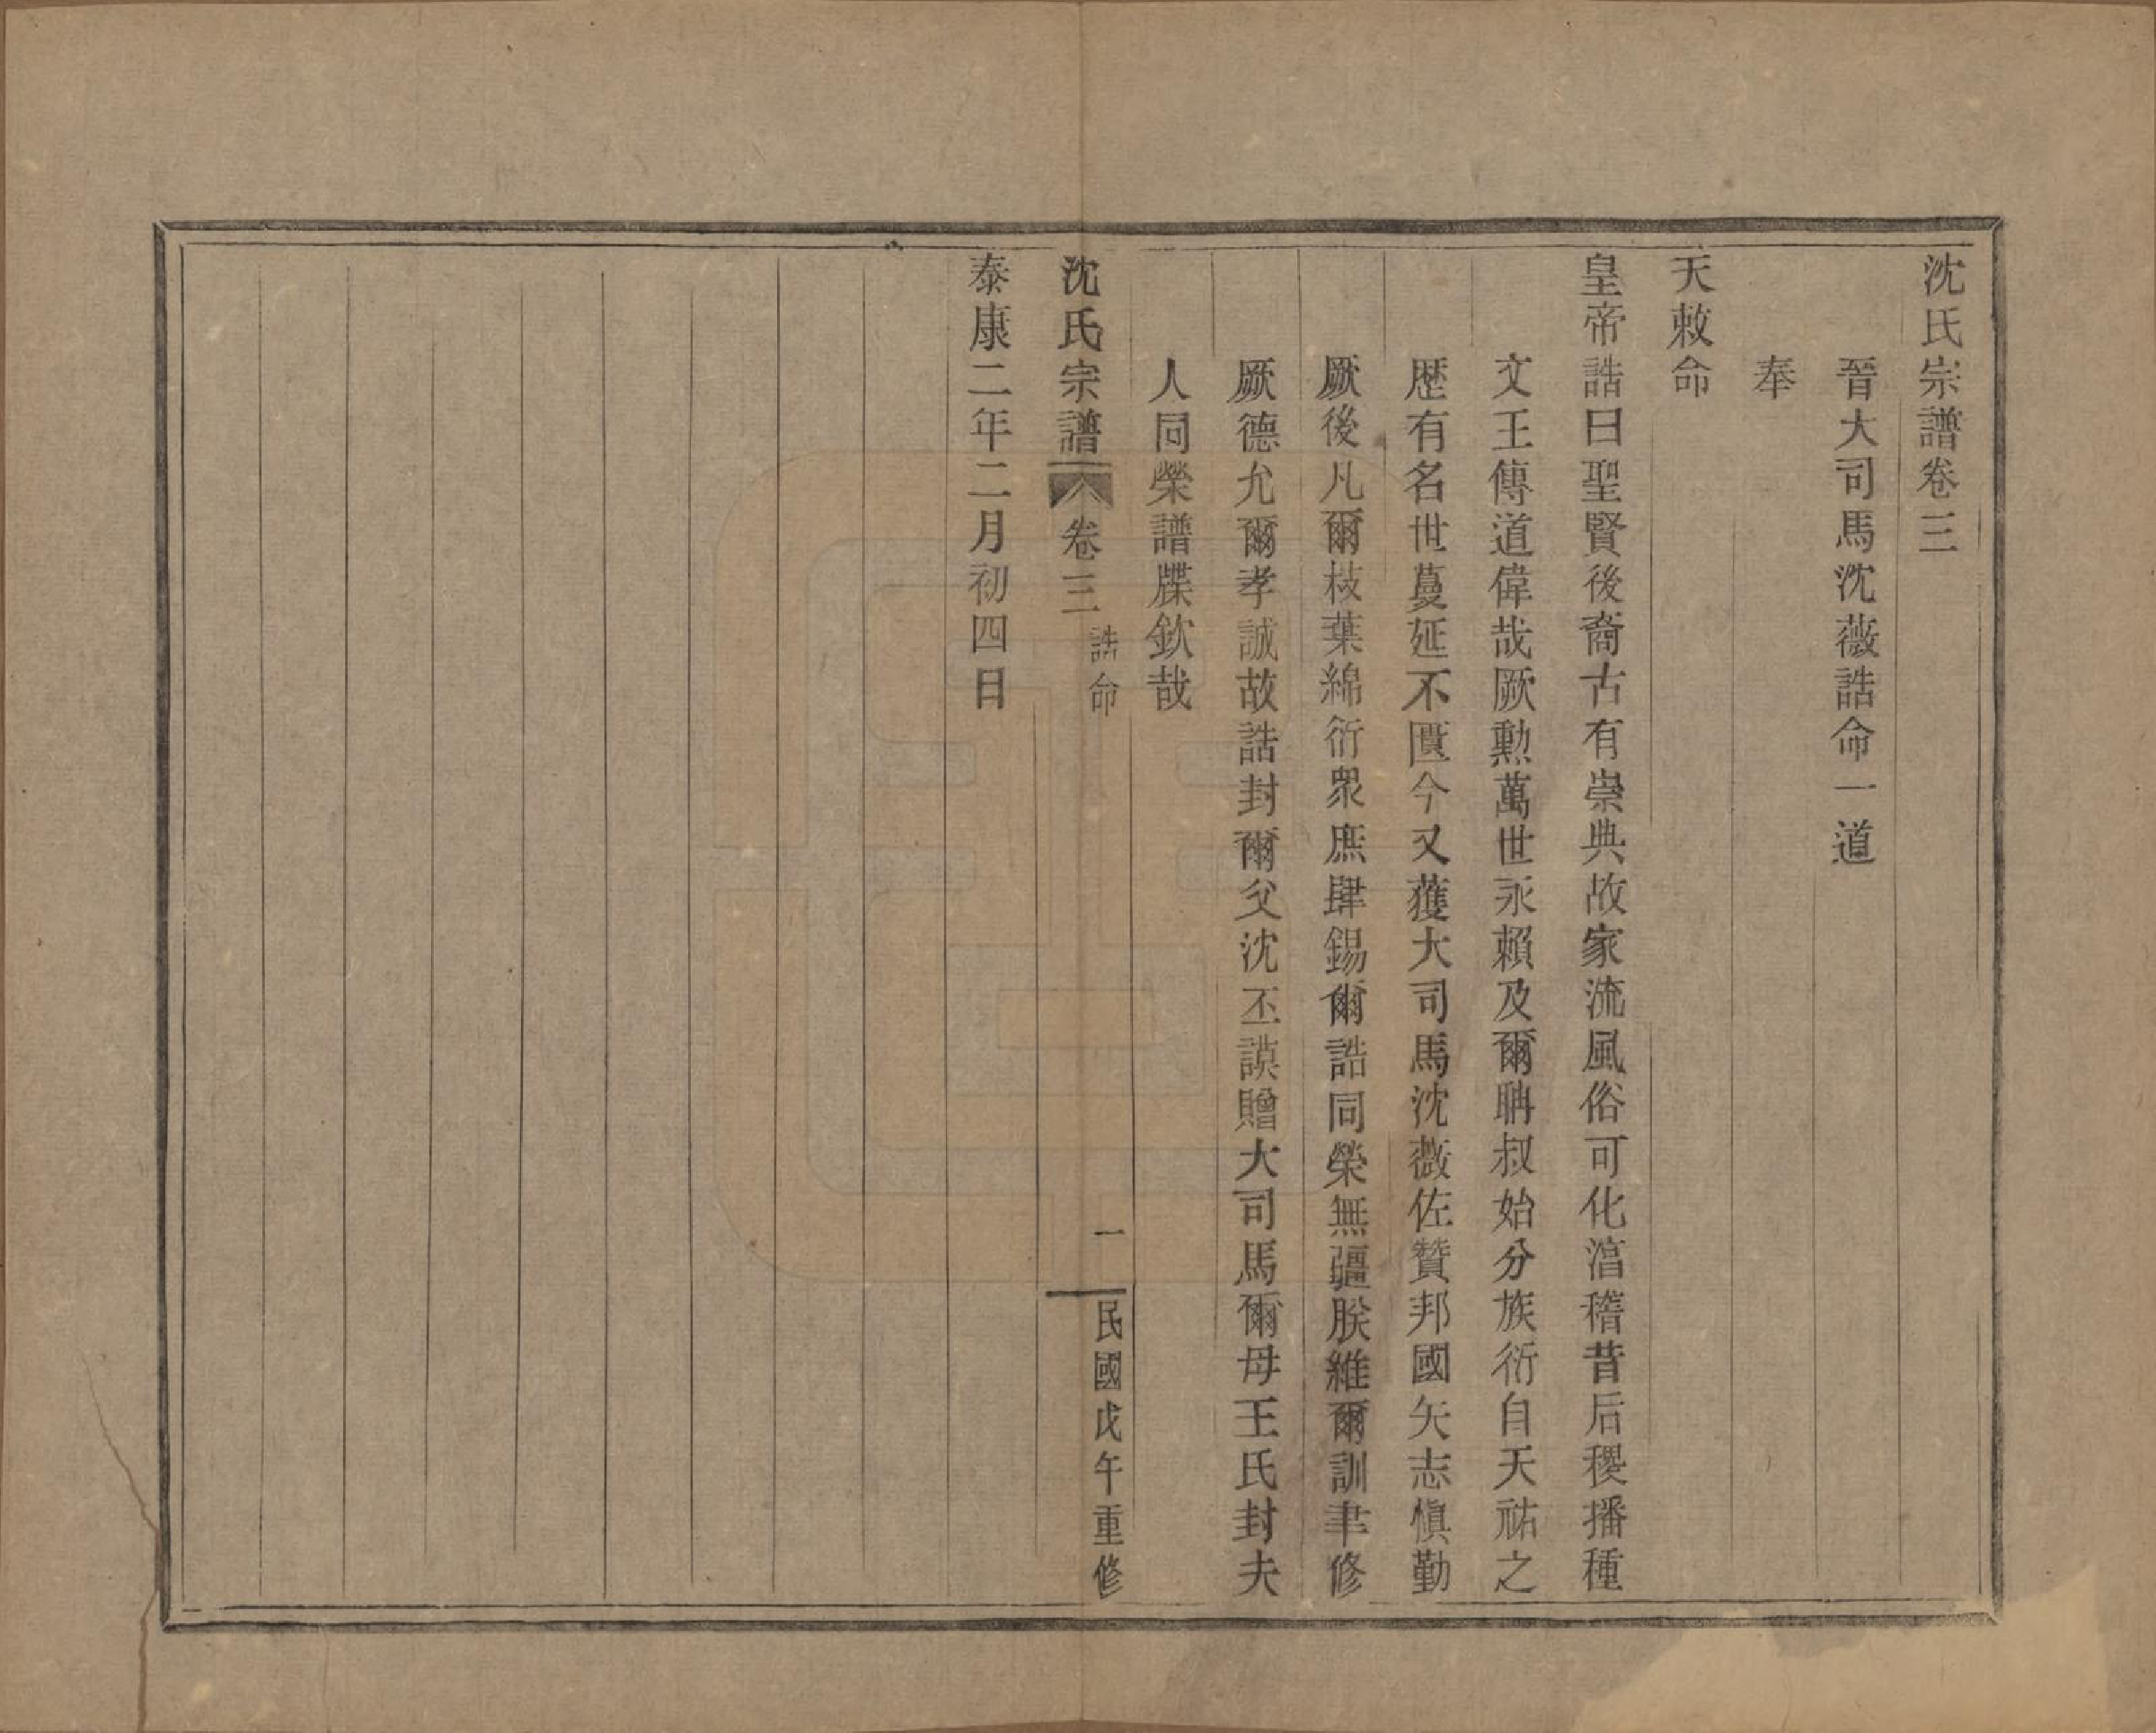 沈氏宗譜卷三
晉大司馬沈薇誥命一道
奉
天敕命
皇帝誥曰聖賢後裔古有崇典故家流風俗可化湻稽昔后稷播種
文王傳道偉哉厥勳萬世永賴及爾聃叔始分族衍自天祐之
歷有名世蔓延不匱今又獲大司馬沈薇佐贊邦國矢志愼勤
厥後凡爾枝葉綿衍衆庶肆錫爾誥同榮無疆朕維爾訓聿修
厥德允爾孝誠故誥封爾父沈丕謨贈大司馬爾母王氏封夫
人同榮譜牒欽哉
沈氏宗譜 卷三 誥命 一 民國戊午重修
泰康二年二月初四日